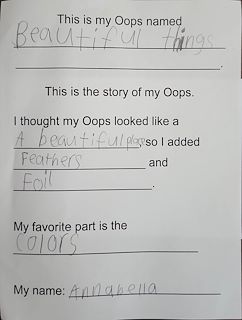 This is my Oops named
Beautiful things
.
This is the story of my Oops.
I thought my Oops looked like a
A beautiful place, so I added
Feathers and
Foil.
My favorite part is the
colors
My name: Annabella